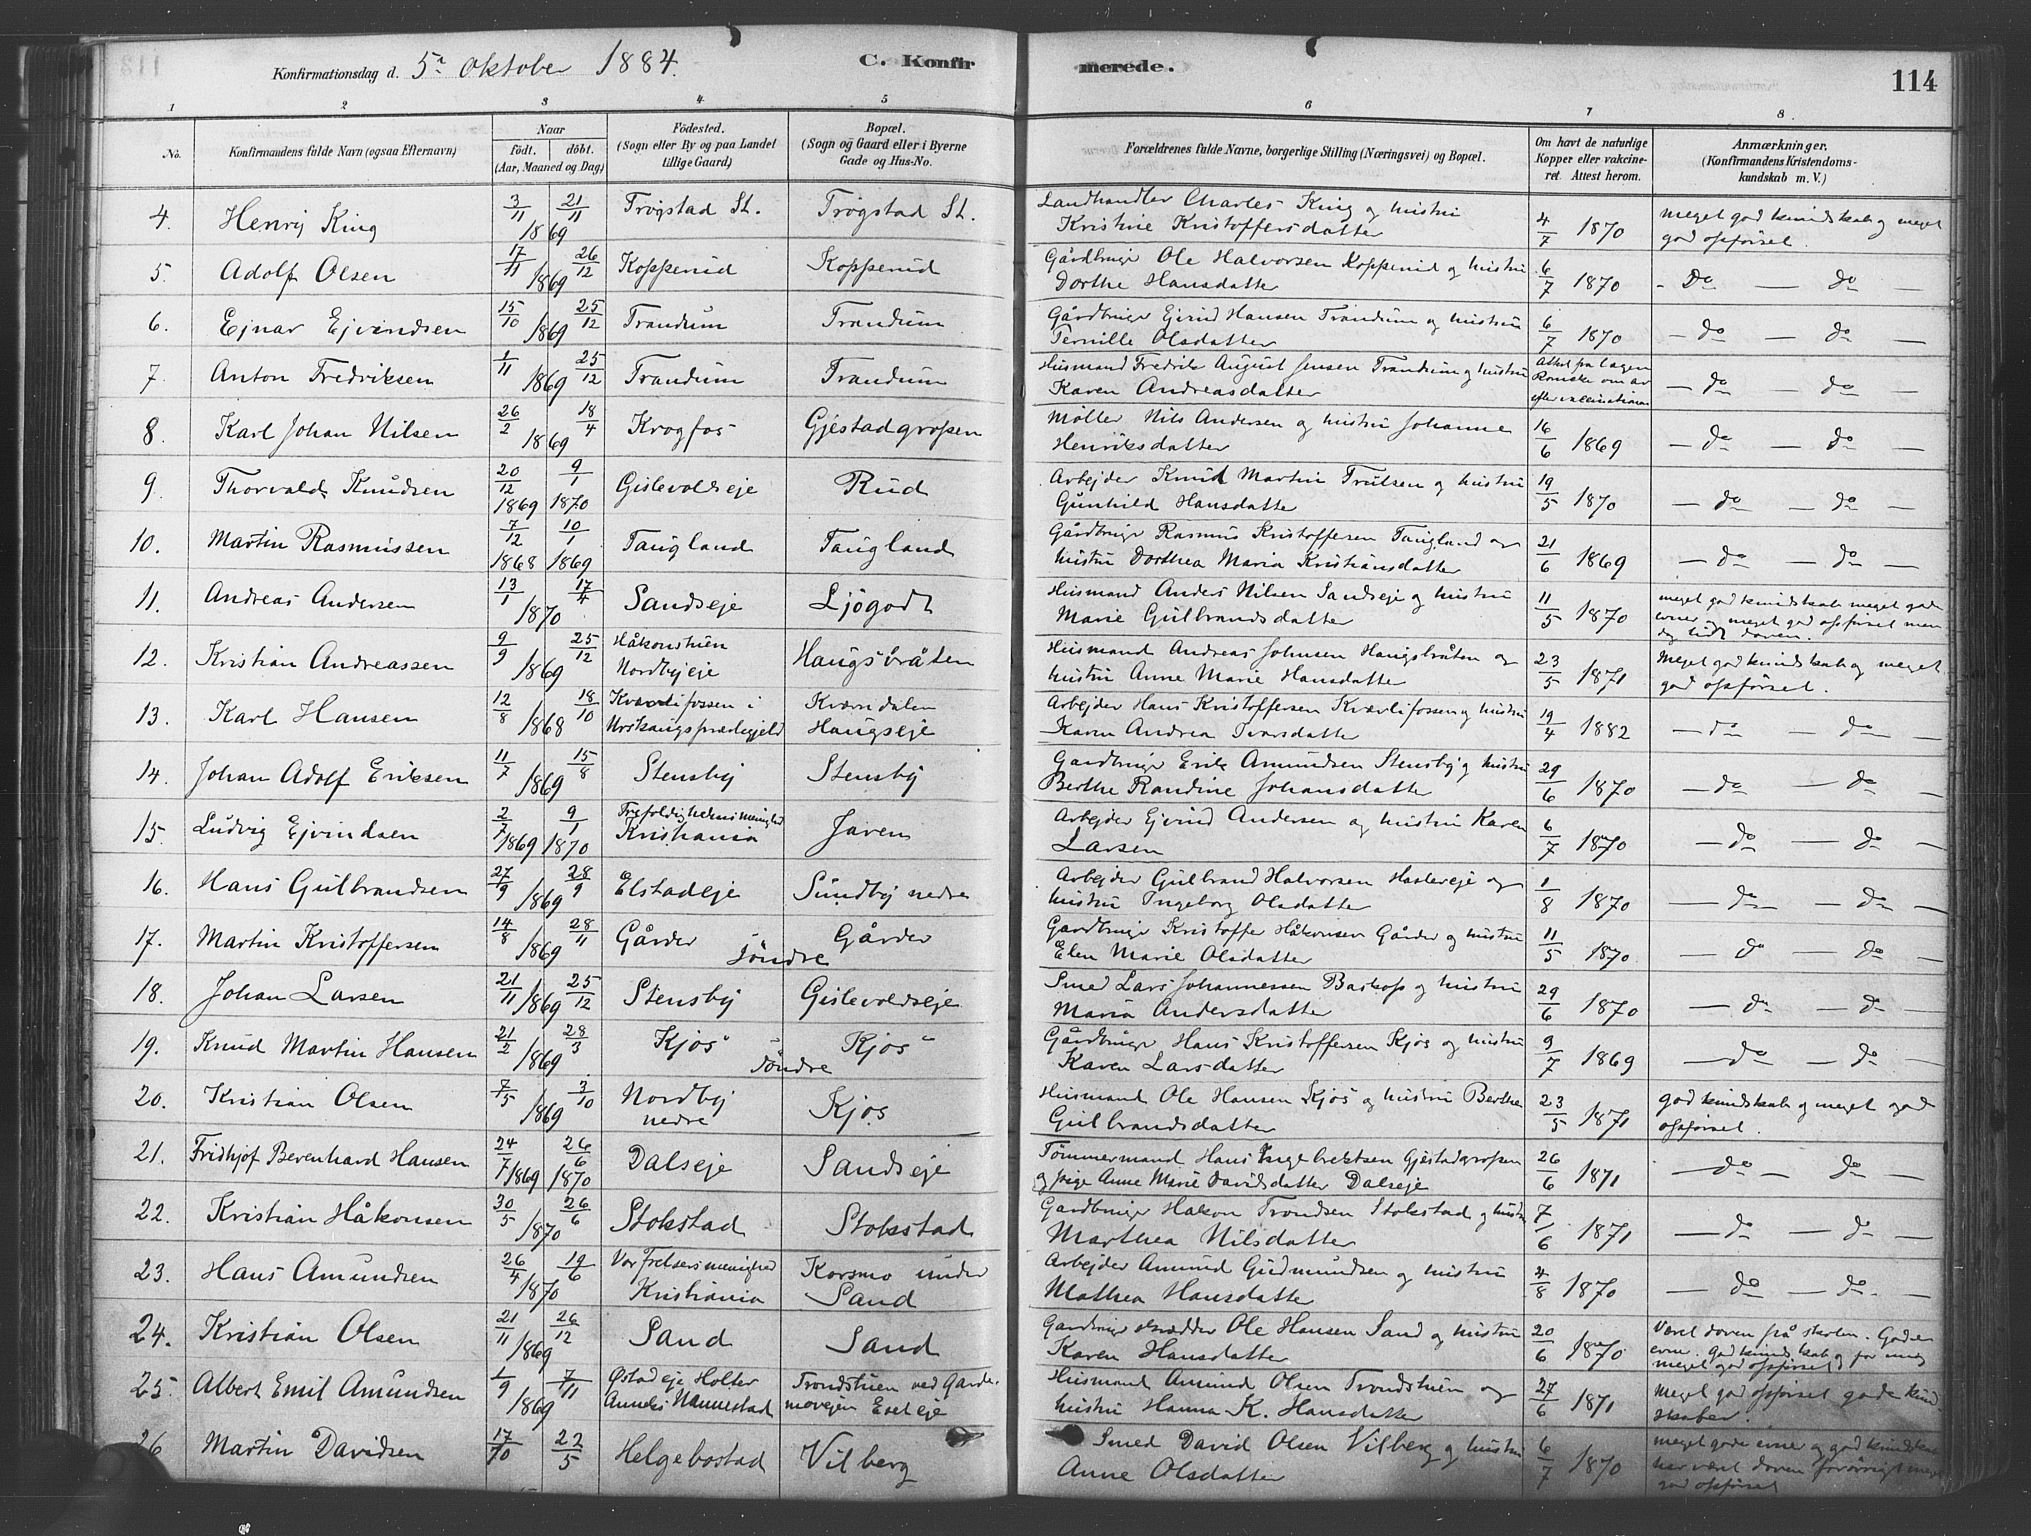 Konfirmationsdag d. 5te Oktober 1884.
C. Konfirmerede.
114
1 2 3 4 5 6 7 8.
No.
Konfirmandens fulde Navn (ogsaa Efternavn)
Naar
födt. döbt.
(Aar, Maaned og Dag)
Födested.
(Sogn eller By og paa Landet
tillige Gaard)
Bopæl.
(Sogn og Gaard eller i Byerne
Gade og Hus-No.
Forældrenes fulde Navne, borgerlige Stilling (Næringsvei) og Bopæl.
Om havt de naturlige
Kopper eller vakcine-
ret. Attest herom.
Anmærkninger.
(Konfirmandens Kristendoms-
kundskab m. V.)
4. Henrij King 3/11 21/11 1869 Trøgstad St. Trøgstad St. Landhandler Charles King og hustru
Kristine Kristoffersdatter 4/7 1870 meget god kundskab og meget
god opførsel.
5. Adolf Olsen 17/11 26/12 1869 Kopperud Kopperud Gårdbruger Ole Halvorsen Kopperud og hustru
Dorthe Hansdatter 6/7 1870 - Do — do —
6. Ejnar Ejvindsen 15/10 25/12 1869 Trandum Trandum Gårdbruger Ejvind Hansen Trandum og hustru
Pernille Olsdatter 6/7 1870 — do — do —
7. Anton Fredriksen 1/11 25/12 1869 Trandum Trandum Husmand Fredrik August Jensen Trandum og hustru
Karen Andreasdatter — do — do —
8. Karl Johan Nilsen 26/2 18/4 1869 Krogfos Gjestadgropen Møller Nils Andersen og hustru Johanne
Henriksdatter 16/6 1869 — do — do —
9. Thorvald Knudsen 20/12 1869 9/1 1870 Gislevoldseje Rud Arbejder Knud Martin Trulsen og hustru
Gunhild Hansdatter 19/5 1870 — do — do —
10. Martin Rasmussen 7/12 1868 10/1 1869 Taugland Taugland Gårdbruger Rasmus Kristoffersen Taugland og
hustru Dorthea Maria Kristiansdatter 21/6 1869 — do — do —
11. Andreas Andersen 13/1 17/4 1870 Sandseje Ljøgodt Husmand Anders Nilsen Sandseje og hustru
Marie Gulbrandsdatter 11/5 1870 meget god kundskab meget gode
evner og meget god opførsel men
dog lidt doven.
12. Kristian Andreassen 9/9 25/12 1869 Håkonstuen
Nordbyeje Haugsbråten Husmand Andreas Johnsen Haugsbråten og
hustru Anne Marie Hansdatter 23/5 1871 Meget god kundskab og meget
god opførsel.
13. Karl Hansen 12/8 18/10 1868 Kværlifossen i
Urskougs prædegjeld Kværndalen
Haugseje Arbejder Hans Kristoffersen Kværlifossen og hustru
Karen Andrea Ivarsdatter 19/4 1882 — do — do —
14. Johan Adolf Eriksen 11/7 15/8 1869 Stensby Stensby Gårdbruger Erik Amundsen Stensby og hustru
Berthe Randine Johansdatter 29/6 1870 — do — do —
15. Ludvig Ejvindsen 2/7 1869 9/1 1870 Trefoldighedens menighed
Kristiania Jaren Arbejder Ejvind Andersen og hustru Karen
Larsen 6/7 1870 — do — do —
16. Hans Gulbrandsen 27/9 28/9 1869 Elstadeje Sundby nedre Arbejder Gulbrand Halvorsen Haslereje og
hustru Ingeborg Olsdatter 1/8 1870 — do — do —
17. Martin Kristoffersen 14/8 28/11 1869 Gårder Søndre Gårder Gårdbruger Kristoffer Håkonsen Gårder og hustru
Elen Marie Olsdatter 11/5 1870 — do — do —
18. Johan Larsen 21/11 25/12 1869 Stensby Gislevoldseje Smed Lars Johannessen Baskop og hustru
Maria Andersdatter 29/6 1870 — do — do —
19. Knud Martin Hansen 21/2 28/3 1869 Kjos Søndre Kjos Gårdbruger Hans Kristoffersen Kjos og hustru
Karen Larsdatter 9/7 1869 — do — do —
20. Kristian Olsen 7/5 3/10 1869 Nordby
nedre Kjos Husmand Ole Hansen Kjos og hustru Berthe
Gulbrandsdatter 23/5 1871 god kundskab og meget god
opførsel.
21. Fridhjof Berenhard Hansen 24/7 1869 26/6 1870 Dalseje Sandseje Tømmermand Hans Ingebrektsen Gjestadgropen
og pige Anne Marie Davidsdatter Dalseje 26/6 1871 — do — do —
22. Kristian Håkonsen 30/5 26/6 1870 Stokstad Stokstad Gårdbruger Håkon Trondsen Stokstad og hustru
Marthea Nilsdatter 7/6 1871 — do — do —
23. Hans Amundsen 26/4 19/6 1870 Vor Frelsers menighed
Kristiania Korsmo under
Sand Arbejder Amund Gudmundsen og hustru
Mathea Hansdatter 4/8 1870 — do — do —
24. Kristian Olsen 21/11 26/12 1869 Sand Sand Gårdbruger skrædder Ole Hansen Sand og hustru
Karen Hansdatter 20/6 1870 Været doven på skolen. Gode
evner. God kundskab og
meget god opførsel
25. Albert Emil Amundsen 1/9 7/11 1869 Østadeje Holter
Annex Nannestad Trondstuen ved Garder-
movejen Eseteje Husmand Amund Olsen Trondstuen og
hustru Hanna K. Hansdatter 27/6 1871 Meget god opførsel gode kund
skaber.
26 Martin Davidsen 17/10 22/5 Helgebostad Vilberg Smed David Olsen Vilberg og hustru
Anne Olsdatter 6/7 1870 meget gode evner og god kundskab
har været doven forøvrigt meget
god opførsel